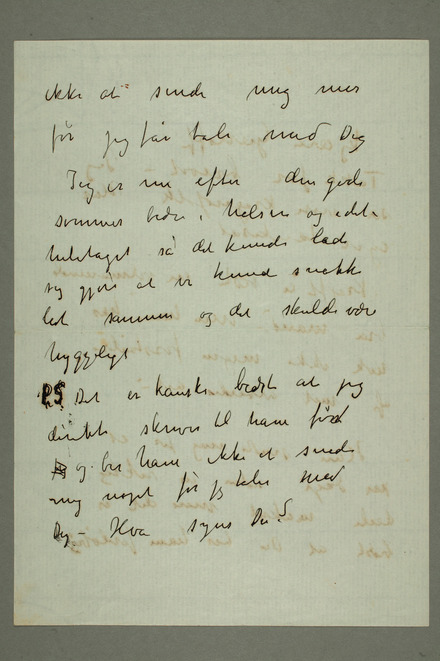 ikke at sende mig mer
før jeg får tale med Dig
Jeg er nu efter den gode
sommer bedre i helsen og i det
heletaget så det kunde lad
sig gjøre at vi kunde snakk
lit sammen og det skulde være
hyggeligt
PS Det er kanske bedst at jeg
direkte skriver til ham först
og ber ham ikke at sende
mig noget før jeg taler med
Dig – Hva synes Du?